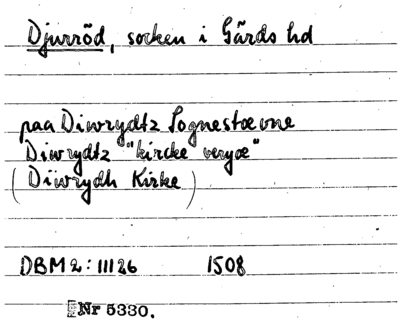 Djurröd, socken i Gärds hd
paa Diwrydtz Sognestævne
Diwrydtz "kircke veryæ"
(Diwrydh Kirke)
DBM 2: III 26 1508
Nr 5330.